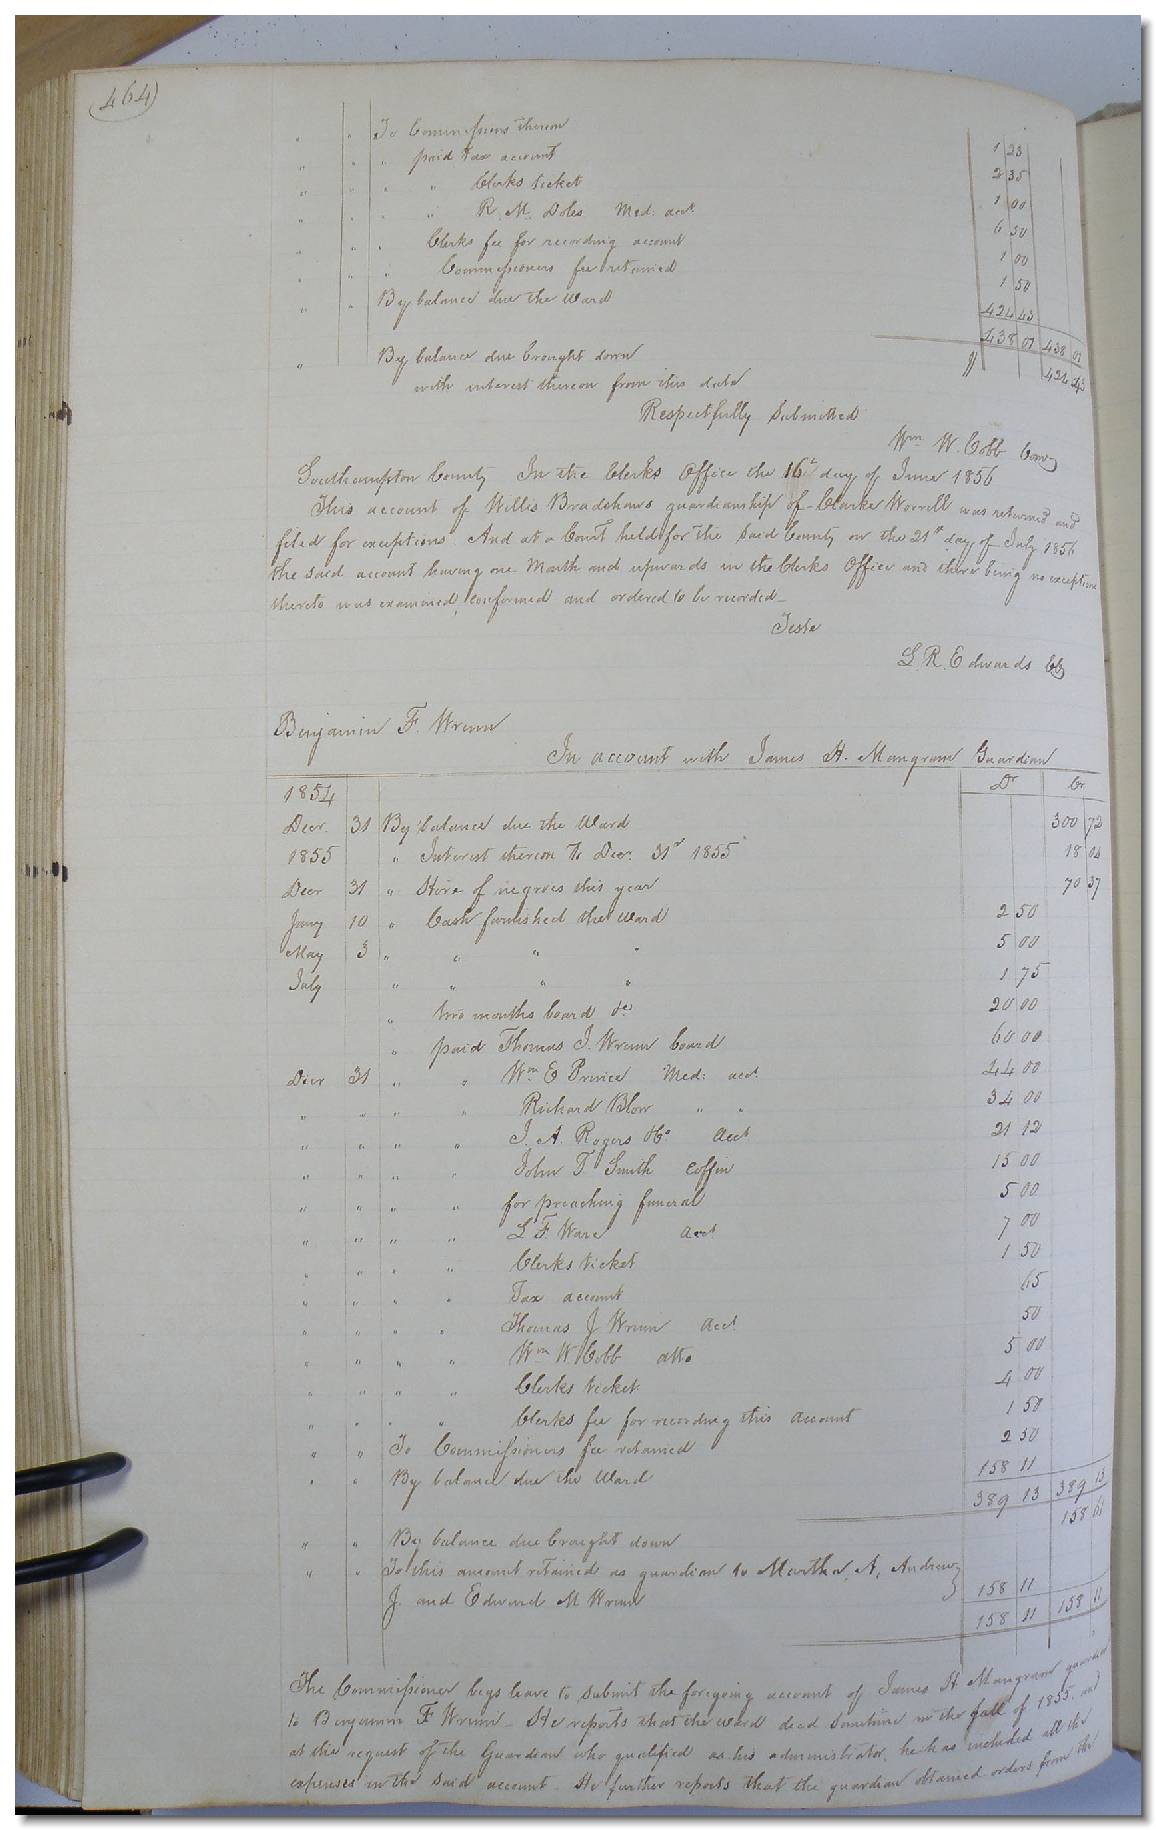 (464)
" " To Commissions thereon 1 23
" " " paid tax account 2 35
" " " " Clerks ticket 1 00
" " " " R. M. Doles Med. acct. 6 50
" " " Clerks fee for recording account 1 00
" " " Commissioners fee retained 1 50
" " By balance due the Ward 424 43
438 01 438 01
" By balance due brought down 424 43
with interest thereon from this date
Respectfully Submitted
Wm W. Cobb Com
Southampton County In the Clerks Office the 16th day of June 1856
This account of Willis Bradshaws guardianship of Clarke Worrell was returned and
filed for exceptions. And at a Court held for the Said County on the 21st day of July 1856
the Said account having one Month and upwards in the Clerks Office and there being no exception
thereto was examined, confirmed and ordered to be recorded_
Teste
L. R. Edwards Clk
Benjamin F. Wrenn
In account with James H. Mangram Guardian
1854 Dr Cr
Decr. 31 By balance due the Ward 300 72
1855 " Interest thereon to Decr. 31st 1855 18 04
Decr 31 " Hire of negroes this year 70 37
Jany 10 " Cash furnished the ward 2 50
May 3 " " " " 5 00
July " " " " 1 75
" two months board &c 20 00
" paid Thomas J. Wrenn board 60 00
Decr 31 " " Wm E Prince Med: acct. 44 00
" " " " Richard Blow " " 34 00
" " " " J. A. Rogers &Co Acct 21 12
" " " " John T. Smith coffin 15 00
" " " " for preaching funeral 5 00
" " " " L F. Ware acct 7 00
" " " " Clerks ticket 1 50
" " " " Tax account 65
" " " " Thomas J Wrenn Acct. 50
" " " " Wm W. Cobb atto 5 00
" " " " Clerks ticket 4 00
" " " " Clerks fee for recording this account 1 50
" " To Commissioners fee retained 2 50
" " By balance due the Ward 158 11
389 13 389 13
" " By balance due brought down 158 11
" " To this amount retained as guardian to Martha, A, Andrew
J. and Edward M Wrenn 158 11
158 11 158 11
The Commissioner begs leave to Submit the foregoing account of James H Mangram guardian
to Benjamin F Wrenn_ He reports that the ward died Sometime in the fall of 1855, and
at the request of the Guardian who qualified as his administrator, he has included all the
expenses in the Said account. He further reports that the guardian obtained orders from the